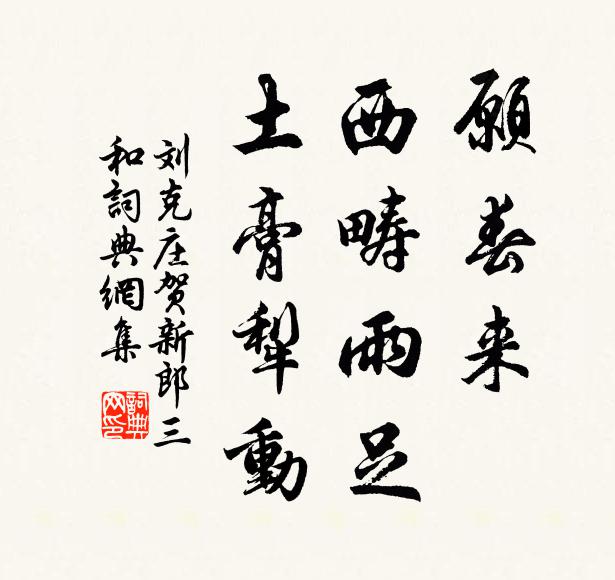 願春来
西疇雨足
土膏犁動
刘克庄贺新郎三
和詞典網集
詞典
网印